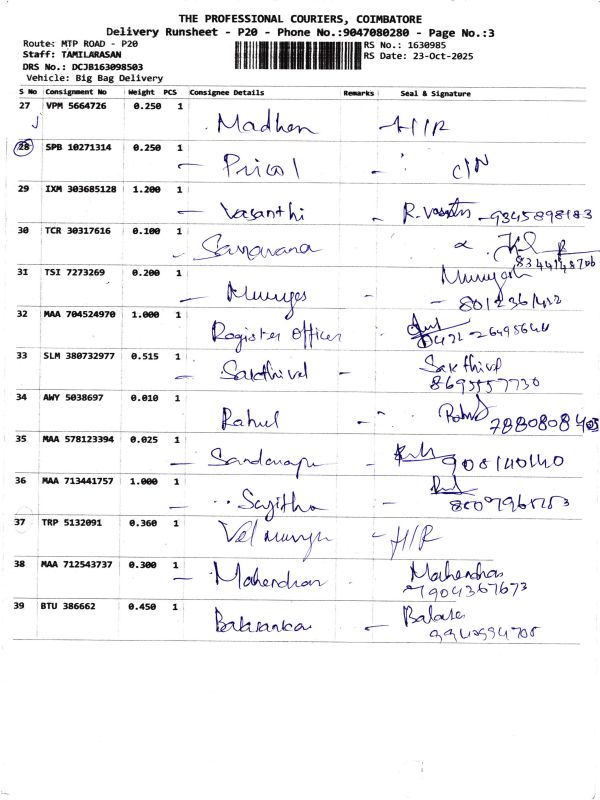 THE PROFESSIONAL COURIERS, COIMBATORE
Delivery Runsheet - P20 - Phone No.:9047080280 - Page No.:3
Route: MTP ROAD - P20
RS No.: 1630985
Staff: TAMILARASAN
RS Date: 23-Oct-2025
DRS No.: DCJB163098503
Vehicle: Big Bag Delivery
S No Consignment No Weight PCS Consignee Details Remarks Seal & Signature
27 VPM 5664726 0.250 1 Madhan H/R
28 SPB 10271314 0.250 1 Pricol
29 IXM 303685128 1.200 1 Vasanthi - R. Vasanthi - 9345898183
30 TCR 30317616 0.100 1 Saravana
8344148706
31 TSI 7273269 0.200 1 Muruges - Murugesh
32 MAA 704524970 1.000 1 Register Officer
33 SLM 380732977 0.515 1 Sakthivel - Sakthivel
8695557730
34 AWY 5038697 0.010 1 Rahul - Rahul
7880808405
35 MAA 578123394 0.025 1
36 MAA 713441757 1.000 1 Sajitha
37 TRP 5132091 0.360 1 Velmurugan - H/R
38 MAA 712543737 0.300 1 Mahendran Mahendran
7904367673
39 BTU 386662 0.450 1